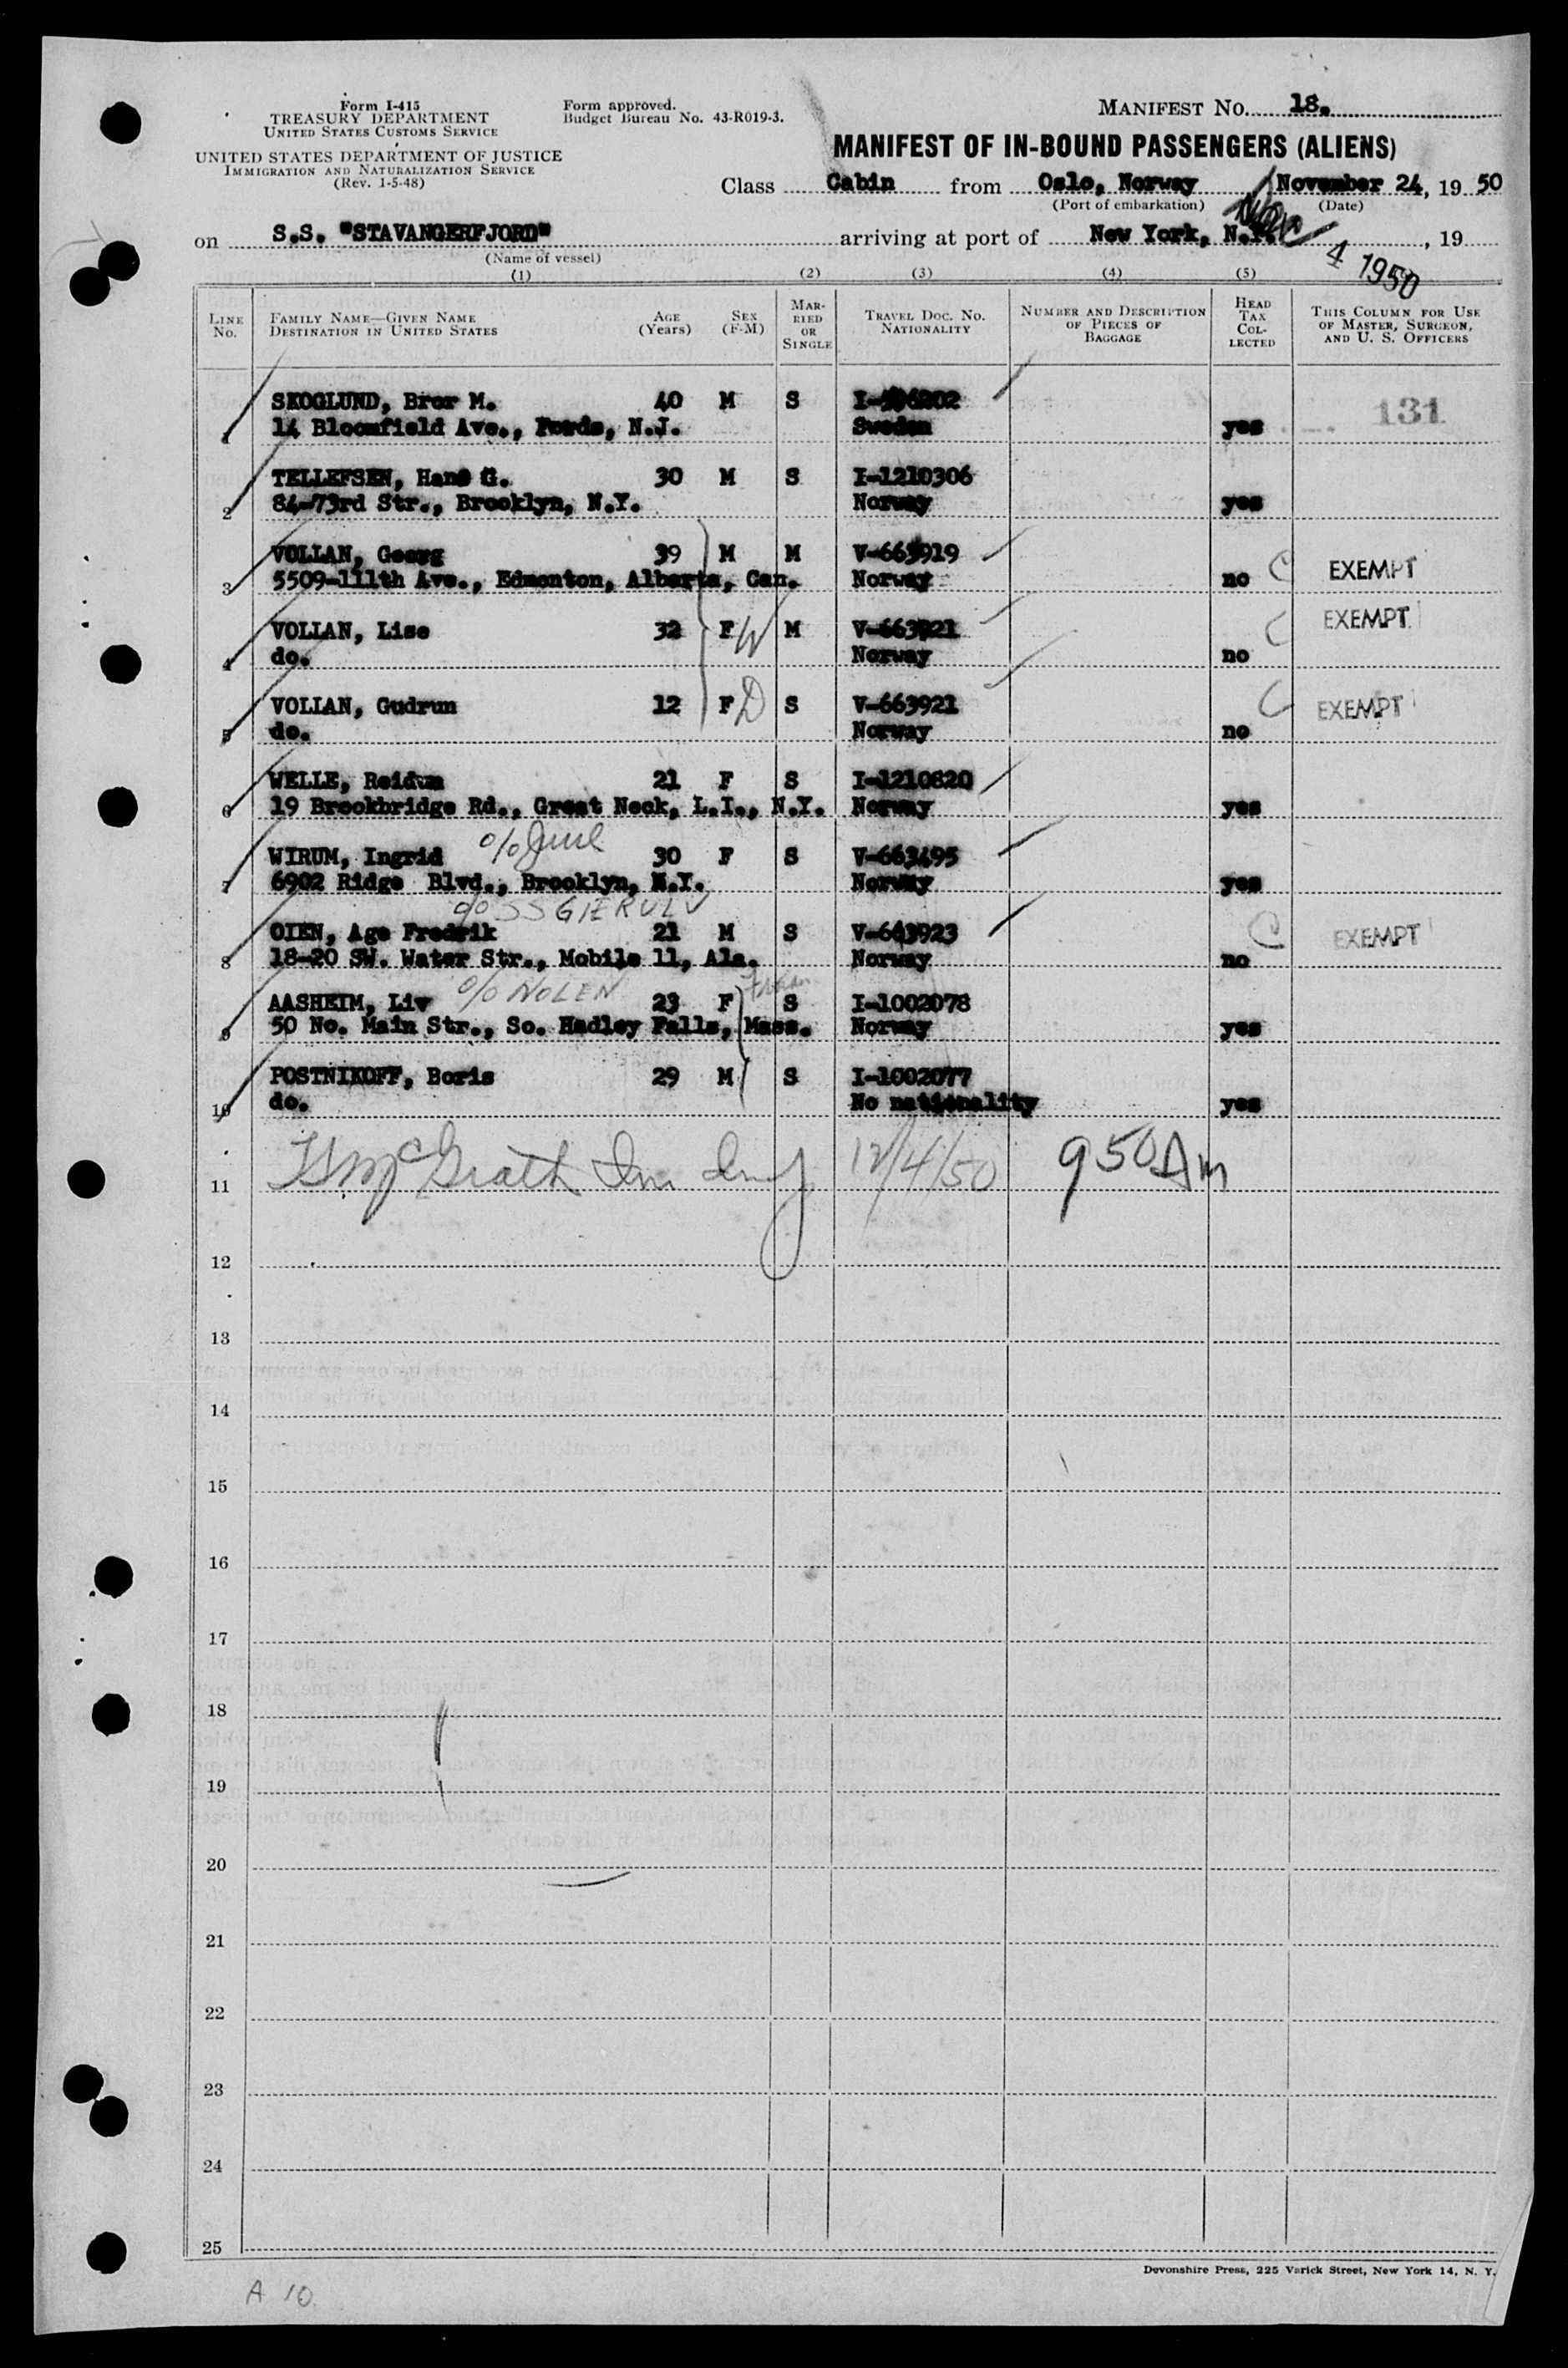 Form I-415
TREASURY DEPARTMENT
UNITED STATES CUSTOMS SERVICE
UNITED STATES DEPARTMENT OF JUSTICE
IMMIGRATION AND NATURALIZATION SERVICE
(Rev. 1-5-48)
Form approved.
Budget Bureau No. 43-R019-3.
MANIFEST No. 18.
MANIFEST OF IN-BOUND PASSENGERS (ALIENS)
Class Cabin from Oslo, Norway, November 24, 19 50
(Port of embarkation) (Date)
on S.S. "STAVANGERFJORD" arriving at port of New York, N.Y. , 19
(Name of vessel)
4 1950
(1) (2) (3) (4) (5)
LINE No. FAMILY NAME—GIVEN NAME DESTINATION IN UNITED STATES AGE (Years) SEX (F-M) MARRIED OR SINGLE TRAVEL DOC. NO. NATIONALITY NUMBER AND DESCRIPTION OF PIECES OF BAGGAGE HEAD TAX COLLECTED THIS COLUMN FOR USE OF MASTER, SURGEON, AND U. S. OFFICERS
SKOGLUND, Bror M. 40 M S 131
1 14 Bloomfield Ave., Fords, N.J. Sweden yes
TELLEFSEN, Hans G. 30 M S I-1210306
2 84-73rd Str., Brooklyn, N.Y. Norway yes
VOLLAN, Georg 39 M M V-663919
3 5509-111th Ave., Edmonton, Alberta, Can. Norway no C EXEMPT
VOLLAN, Lise 32 F W M V-663921 C EXEMPT
4 do. Norway no
VOLLAN, Gudrun 12 F D S V-663921 C EXEMPT
5 do. Norway no
WELLE, Reidun 21 F S I-1210820
6 19 Brookbridge Rd., Great Neck, L.I., N.Y. Norway yes
c/o Juul
WIRUM, Ingrid 30 F S V-663495
7 6902 Ridge Blvd., Brooklyn, N.Y. Norway yes
c/o SS GIERULV
OIEN, Age Fredrik 21 M S V-643923 C EXEMPT
8 18-20 SW. Water Str., Mobile 11, Ala. Norway no
c/o NOLEN
AASHEIM, Liv 23 F S I-1002078
9 50 No. Main Str., So. Hadley Falls, Mass. Norway yes
POSTNIKOFF, Boris 29 M S I-1002077
10 do. No nationality yes
11 H McGrath Imm Insp 12/4/50 950 Am
12
13
14
15
16
17
18
19
20
21
22
23
24
25
Devonshire Press, 225 Varick Street, New York 14, N. Y.
A 10